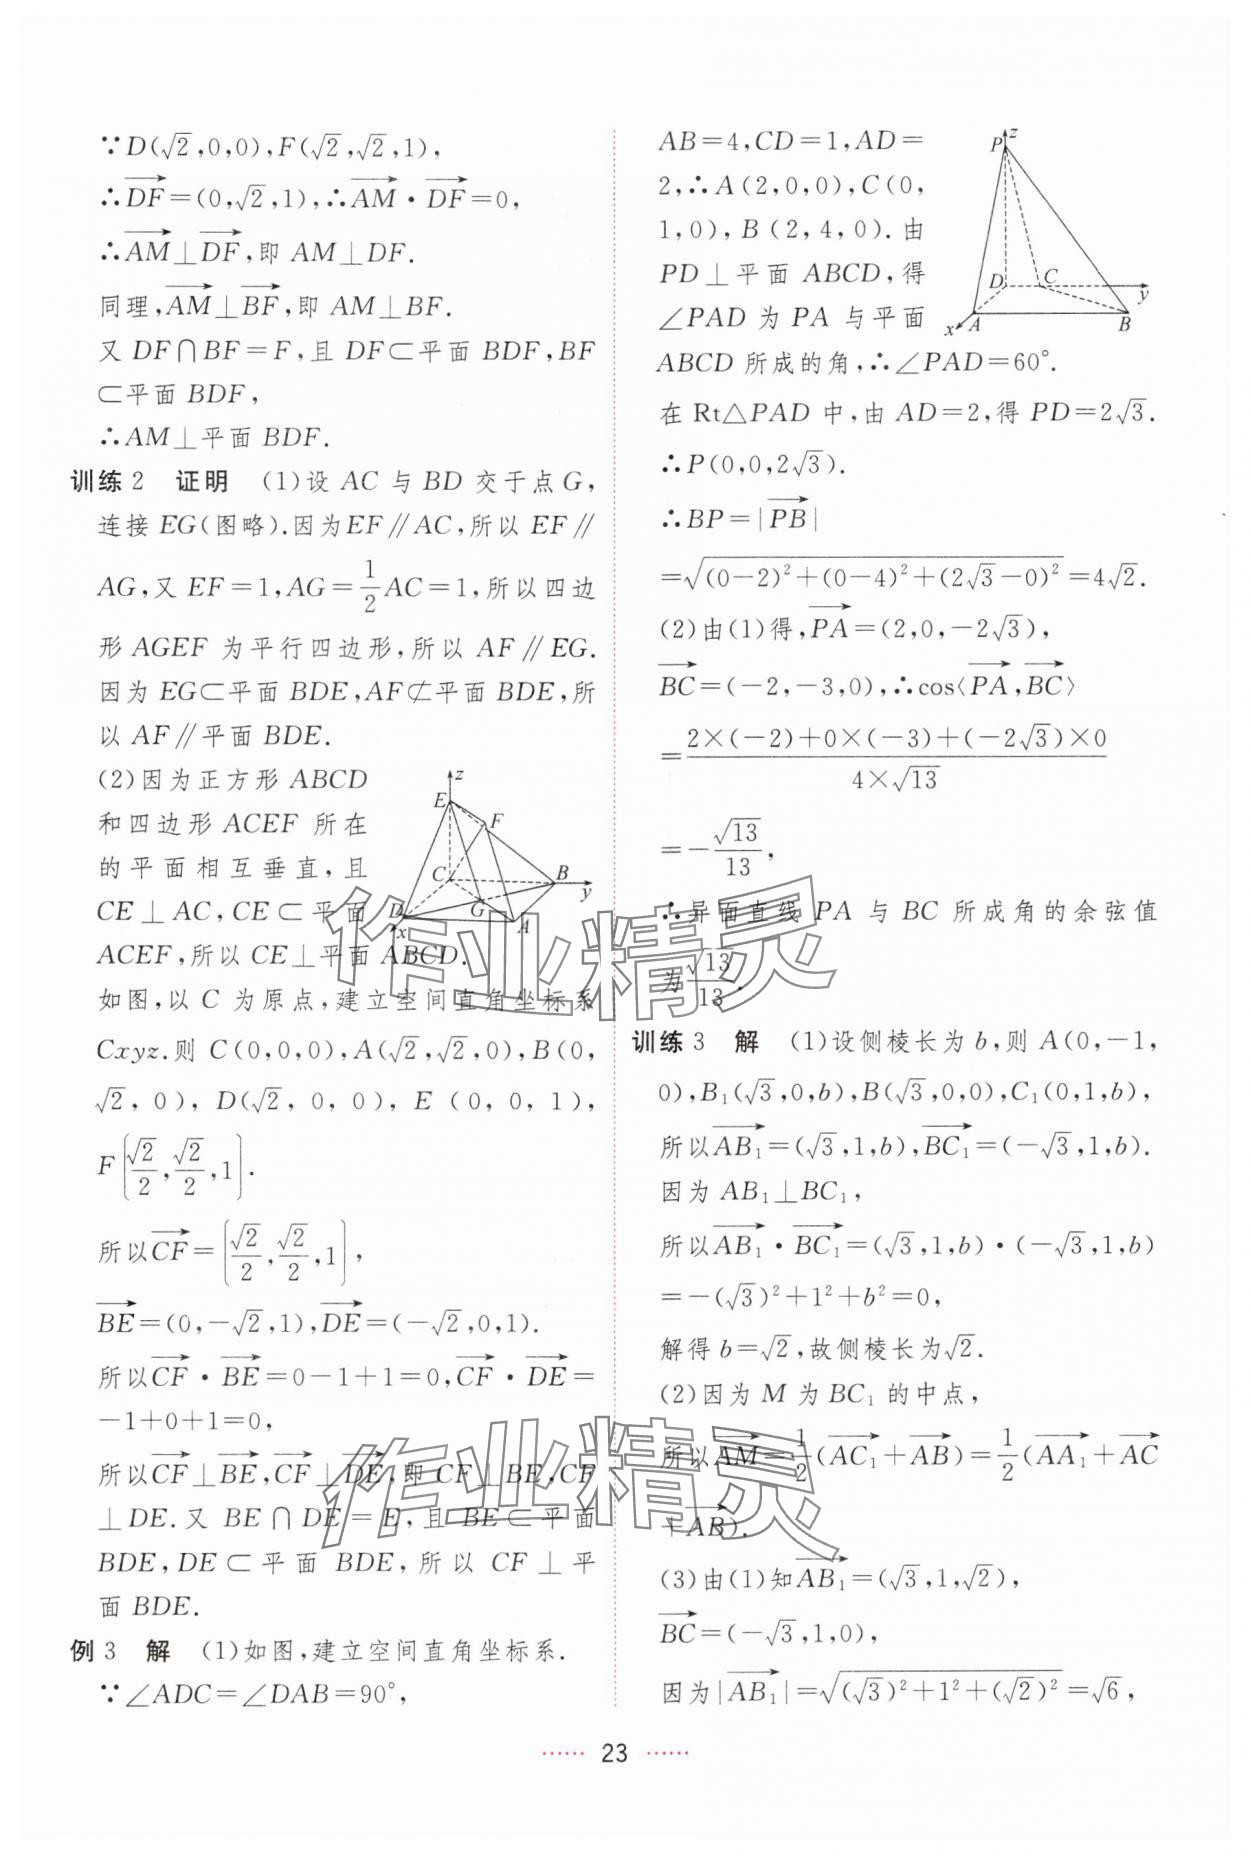 ∵D(√2,0,0),F(√2,√2,1),
∴DF→=(0,√2,1),∴AM→·DF→=0,
∴AM→⊥DF→,即 AM⊥DF.
同理,AM→⊥BF→,即 AM⊥BF.
又 DF∩BF=F,且 DF⊂平面 BDF,BF
⊂平面 BDF,
∴AM⊥平面 BDF.
训练 2 证明 (1)设 AC 与 BD 交于点 G,
连接 EG(图略).因为EF∥AC,所以 EF∥
AG,又 EF=1,AG=1/2AC=1,所以四边
形 AGEF 为平行四边形,所以 AF∥EG.
因为 EG⊂平面 BDE,AF⊄平面 BDE,所
以 AF∥平面 BDE.
(2)因为正方形 ABCD
和四边形 ACEF 所在
的平面相互垂直,且
CE⊥AC,CE⊂平面
ACEF,所以 CE⊥平面 ABCD.
z
E
F
C
B
y
D
G
A
x
如图,以 C 为原点,建立空间直角坐标系
Cxyz.则 C(0,0,0),A(√2,√2,0),B(0,
√2,0),D(√2,0,0),E(0,0,1),
F(√2/2,√2/2,1).
所以CF→=(√2/2,√2/2,1),
BE→=(0,-√2,1),DE→=(-√2,0,1).
所以CF→·BE→=0-1+1=0,CF→·DE→=
-1+0+1=0,
所以CF→⊥BE→,CF→⊥DE→,即 CF⊥BE,CF
⊥DE.又 BE∩DE=E,且 BE⊂平面
BDE,DE⊂平面 BDE,所以 CF⊥平
面 BDE.
例 3 解 (1)如图,建立空间直角坐标系.
∵∠ADC=∠DAB=90°,
AB=4,CD=1,AD=
2,∴A(2,0,0),C(0,
1,0),B(2,4,0).由
PD⊥平面 ABCD,得
∠PAD 为 PA 与平面
ABCD 所成的角,∴∠PAD=60°.
z
P
D
C
y
x
A
B
在 Rt△PAD 中,由 AD=2,得 PD=2√3.
∴P(0,0,2√3).
∴BP=|PB→|
=√((0-2)²+(0-4)²+(2√3-0)²)=4√2.
(2)由(1)得,PA→=(2,0,-2√3),
BC→=(-2,-3,0),∴cos⟨PA→,BC→⟩
=(2×(-2)+0×(-3)+(-2√3)×0)/(4×√13)
=-√13/13,
∴异面直线 PA 与 BC 所成角的余弦值
为√13/13.
训练 3 解 (1)设侧棱长为 b,则 A(0,-1,
0),B₁(√3,0,b),B(√3,0,0),C₁(0,1,b),
所以AB₁→=(√3,1,b),BC₁→=(-√3,1,b).
因为 AB₁⊥BC₁,
所以AB₁→·BC₁→=(√3,1,b)·(-√3,1,b)
=-(√3)²+1²+b²=0,
解得 b=√2,故侧棱长为√2.
(2)因为 M 为 BC₁ 的中点,
所以AM→=1/2(AC₁→+AB→)=1/2(AA₁→+AC→
+AB→).
(3)由(1)知AB₁→=(√3,1,√2),
BC→=(-√3,1,0),
因为|AB₁→|=√((√3)²+1²+(√2)²)=√6,
······ 23 ······
作业精灵
作业精灵